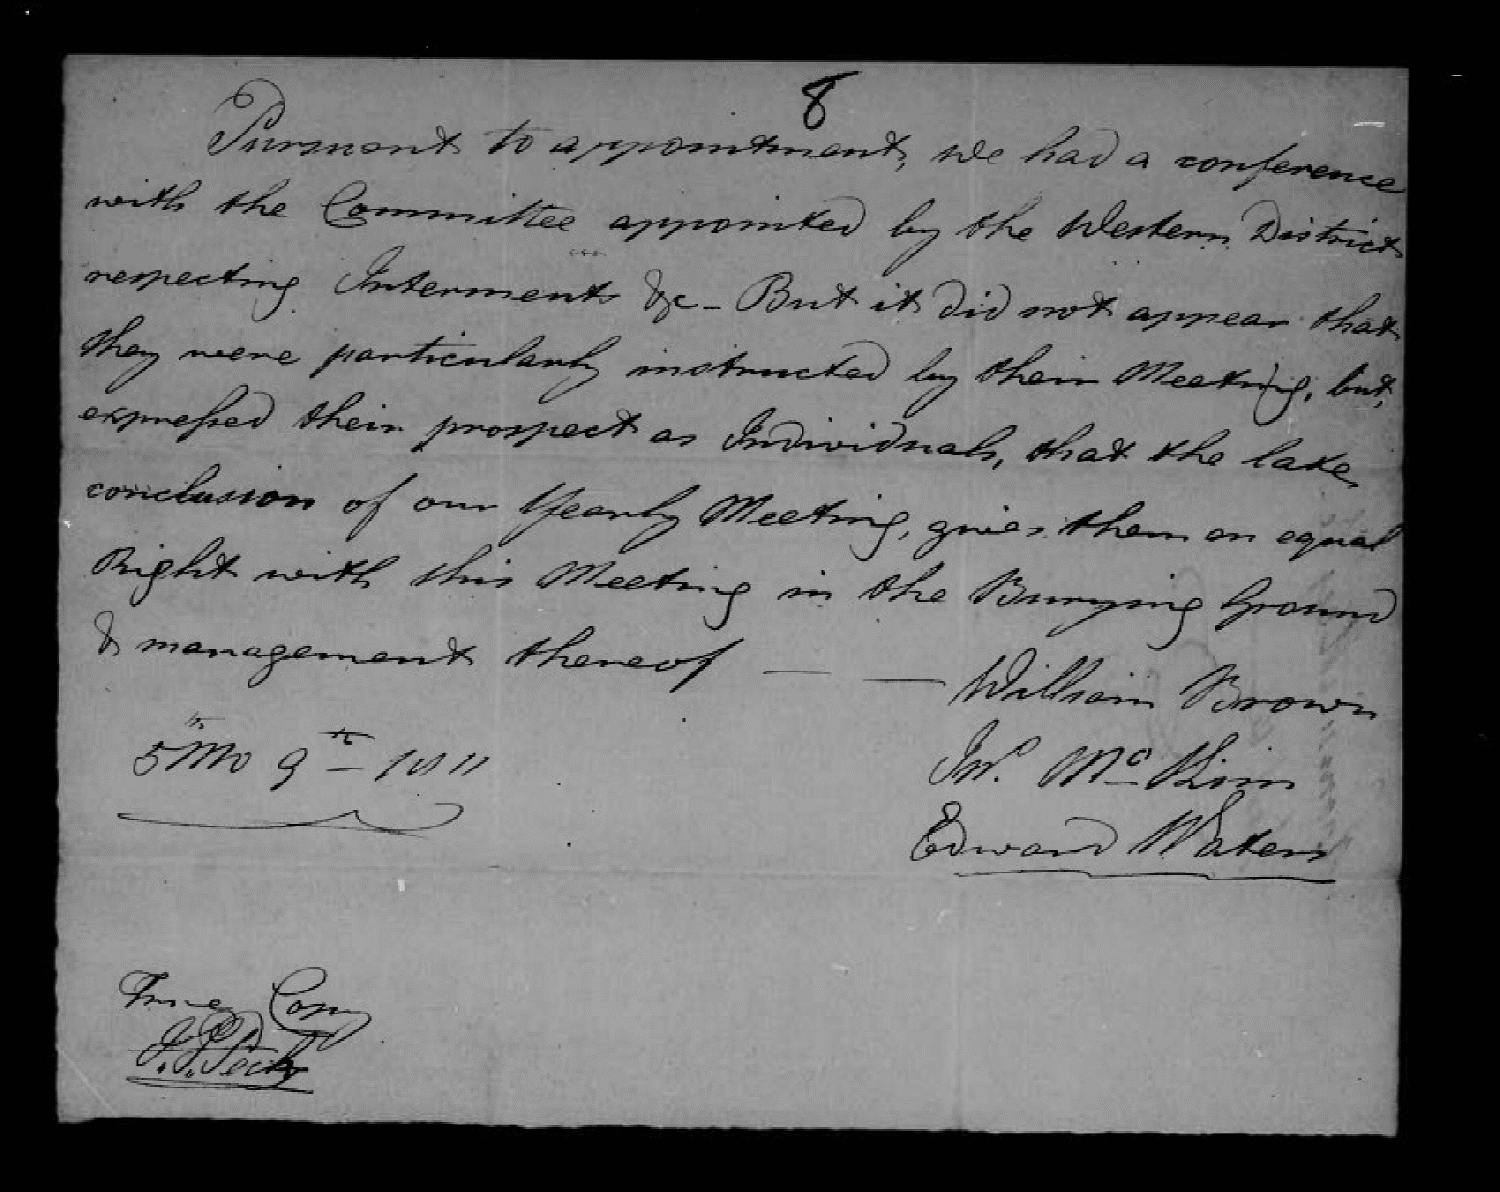 8
Pursuant to appointment, we had a conference
with the Committee appointed by the Western District
respecting Interments &c - But it did not appear that
they were particularly instructed by their Meeting, but,
expressed their prospect as Individuals, that the late
conclusion of our Yearly Meeting, gives them an equal
Right with this Meeting in the Burying Ground
& management thereof — —
William Brown
5th Mo 9th 1811
Jno. McKim
Edward Waters
True Copy